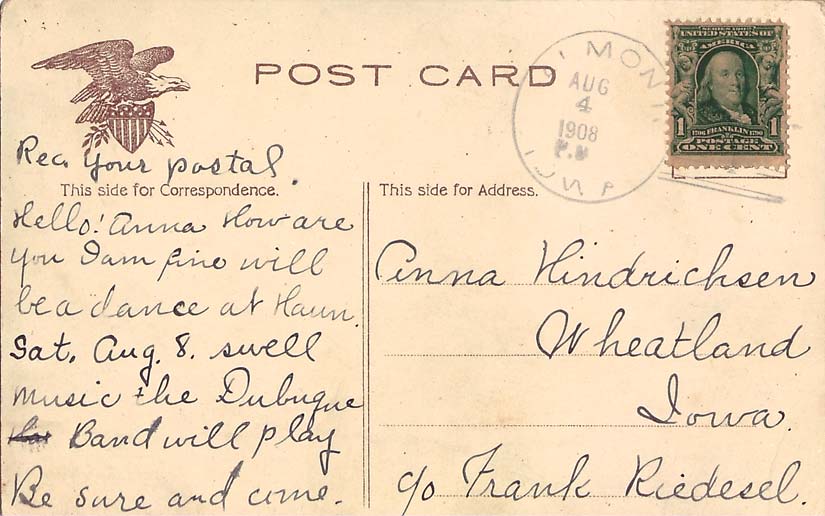 POST CARD
MON
AUG
4
1908
P.M
SERIES 1902
UNITED STATES OF
AMERICA
1 1
1706 FRANKLIN 1790
POSTAGE
ONE CENT
Rec. your postal.
This side for Correspondence.
Hello! Anna How are
you I am fine will
be a dance at Haun.
Sat. Aug. 8. swell
music the Dubuque
Band will play
Be sure and come.
This side for Address.
Anna Hindrichsen
Wheatland
Iowa.
c/o Frank Riedesel.